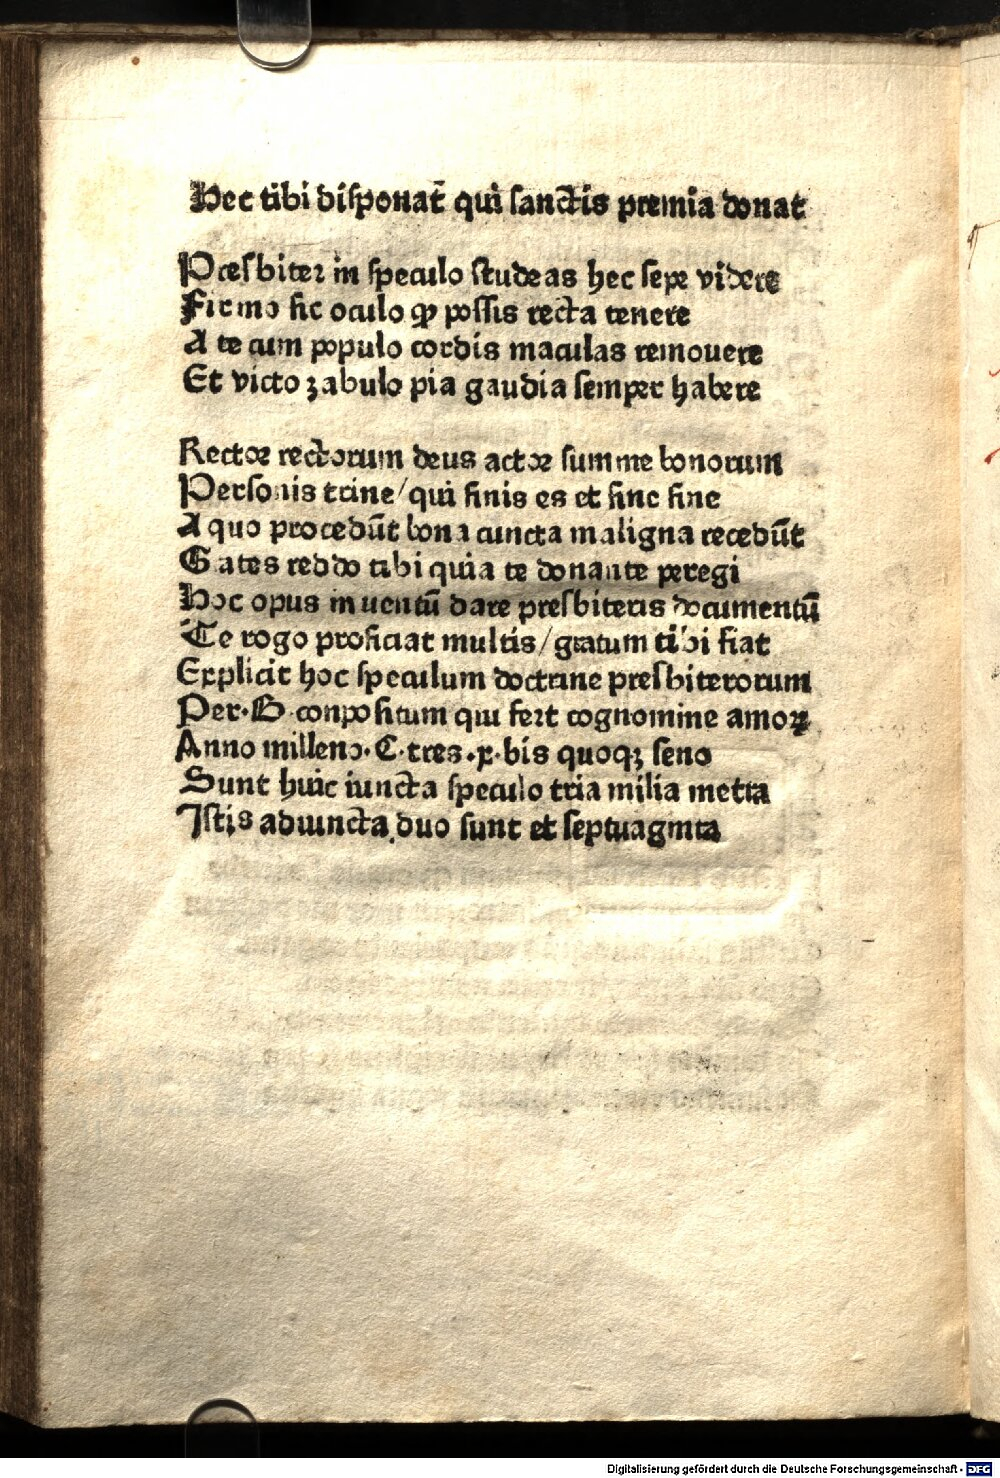 Hec tibi disponat̄ qui sanctis premia donat
Presbiter in speculo studeas hec sepe videre
Firmo sic oculo ꝙ possis recta tenere
A te cum populo cordis maculas remouere
Et victo zabulo pia gaudia semper habere
Rector rectorum deus actor summe bonorum
Personis trine/qui finis es et sine fine
A quo procedūt bona cuncta maligna recedūt
Grates reddo tibi quia te donante peregi
Hoc opus inuentū dare presbiteris documentū
Te rogo proficiat multis/gratum tibi fiat
Explicit hoc speculum doctrine presbiterorum
Per·B·conpositum qui fert cognomine amoꝝ
Anno milleno·C·tres·x·bis quoqꝫ seno
Sunt huic iuncta speculo tria milia metra
Istis adiuncta duo sunt et septuaginta
Digitalisierung gefördert durch die Deutsche Forschungsgemeinschaft - DFG